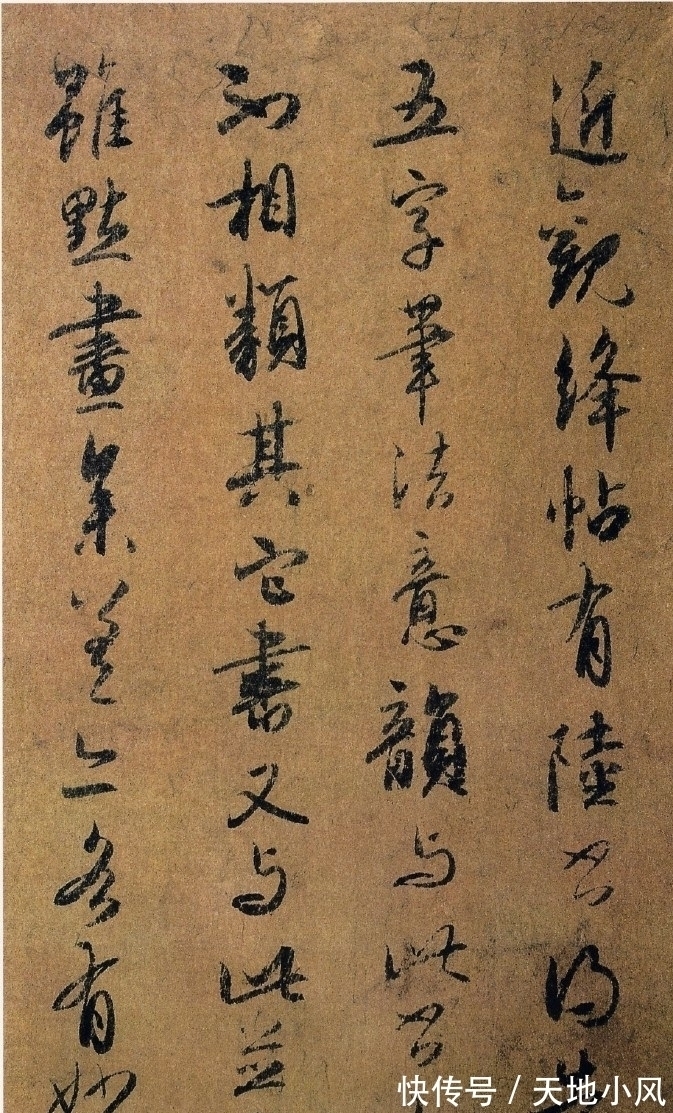 近觀絳帖有陸得
五字筆法意韻与此
相類其它書又与此並
雖點畫參差亦各有妙
快传号 / 天地小风